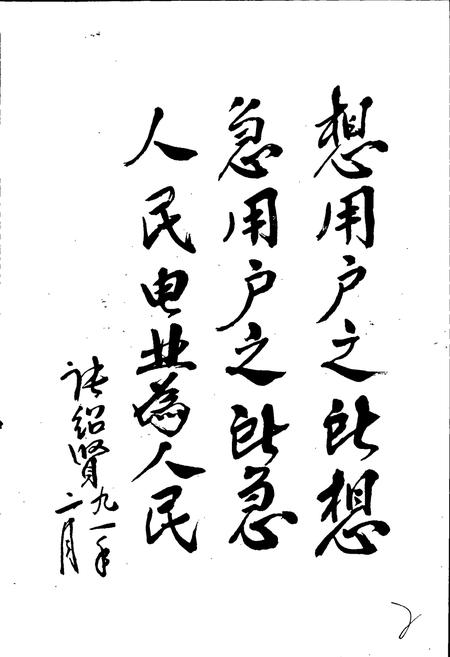 想用户之所想
急用户之所急
人民电业为人民
张绍贤
九一年
二月
2